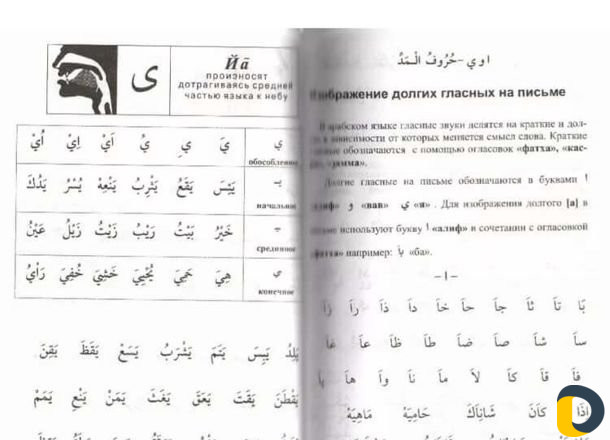 ى
Йā
произносят
дотрагиваясь средней
частью языка к небу
ي يَ يِ يُ اَيْ اِيْ اُيْ
обособленное
يـ يَبِسَ يَقَعُ يَثْرِبُ يَنْعِهْ يُسْرُ يَدُكَ
начальное
ـيـ خَيْرُ بَيْتُ رَيْبُ زَيْتُ زَيْلُ عَيْنُ
срединное
ي هِيَ حَمِيَ يُحْيِيَ خَشِيَ خُفِيَ رَأْيُ
конечное
يَلِدُ يَبِسَ يَتَمَ يَشْرَبُ يَسَعْ يَقَظَ يَقِنَ
يَقْطَنَ يَقَتَ يَعَقَ يَغَثَ يَمَنْ يَنْعِ يَمَمْ
اوي -حُرُوفُ الْـمَدِّ
Изображение долгих гласных на письме
В арабском языке гласные звуки делятся на краткие и дол-
в зависимости от которых меняется смысл слова. Краткие
обозначаются с помощью огласовок «фатха», «кас-
«дамма».
Долгие гласные на письме обозначаются в буквами ا
«алиф» و «вав» ي «и» . Для изображения долгого [а] в
используют букву ا «алиф» в сочетании с огласовкой
«фатха» например: بَا «ба».
–ا–
بَا تَا ثَا جَا حَا خَا دَا ذَا رَا زَا
سَا شَا صَا ضَا طَا ظَا عَا غَا
فَا قَا كَا لَا مَا نَا وَا هَا يَا
اِذَا كَانَ شَانِاَكَ حَامِيَهْ مَاهِيَهْ